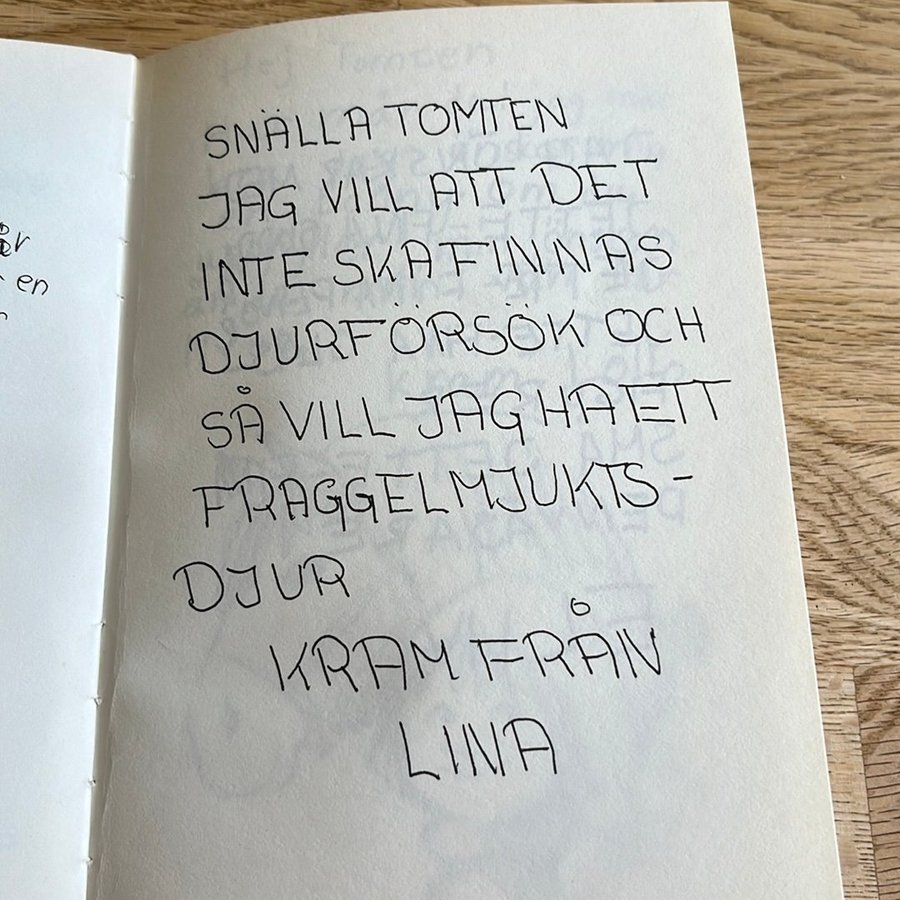 SNÄLLA TOMTEN
JAG VILL ATT DET
INTE SKA FINNAS
DJURFÖRSÖK OCH
SÅ VILL JAG HA ETT
FRAGGELMJUKTS-
DJUR
KRAM FRÅN
LINA
en